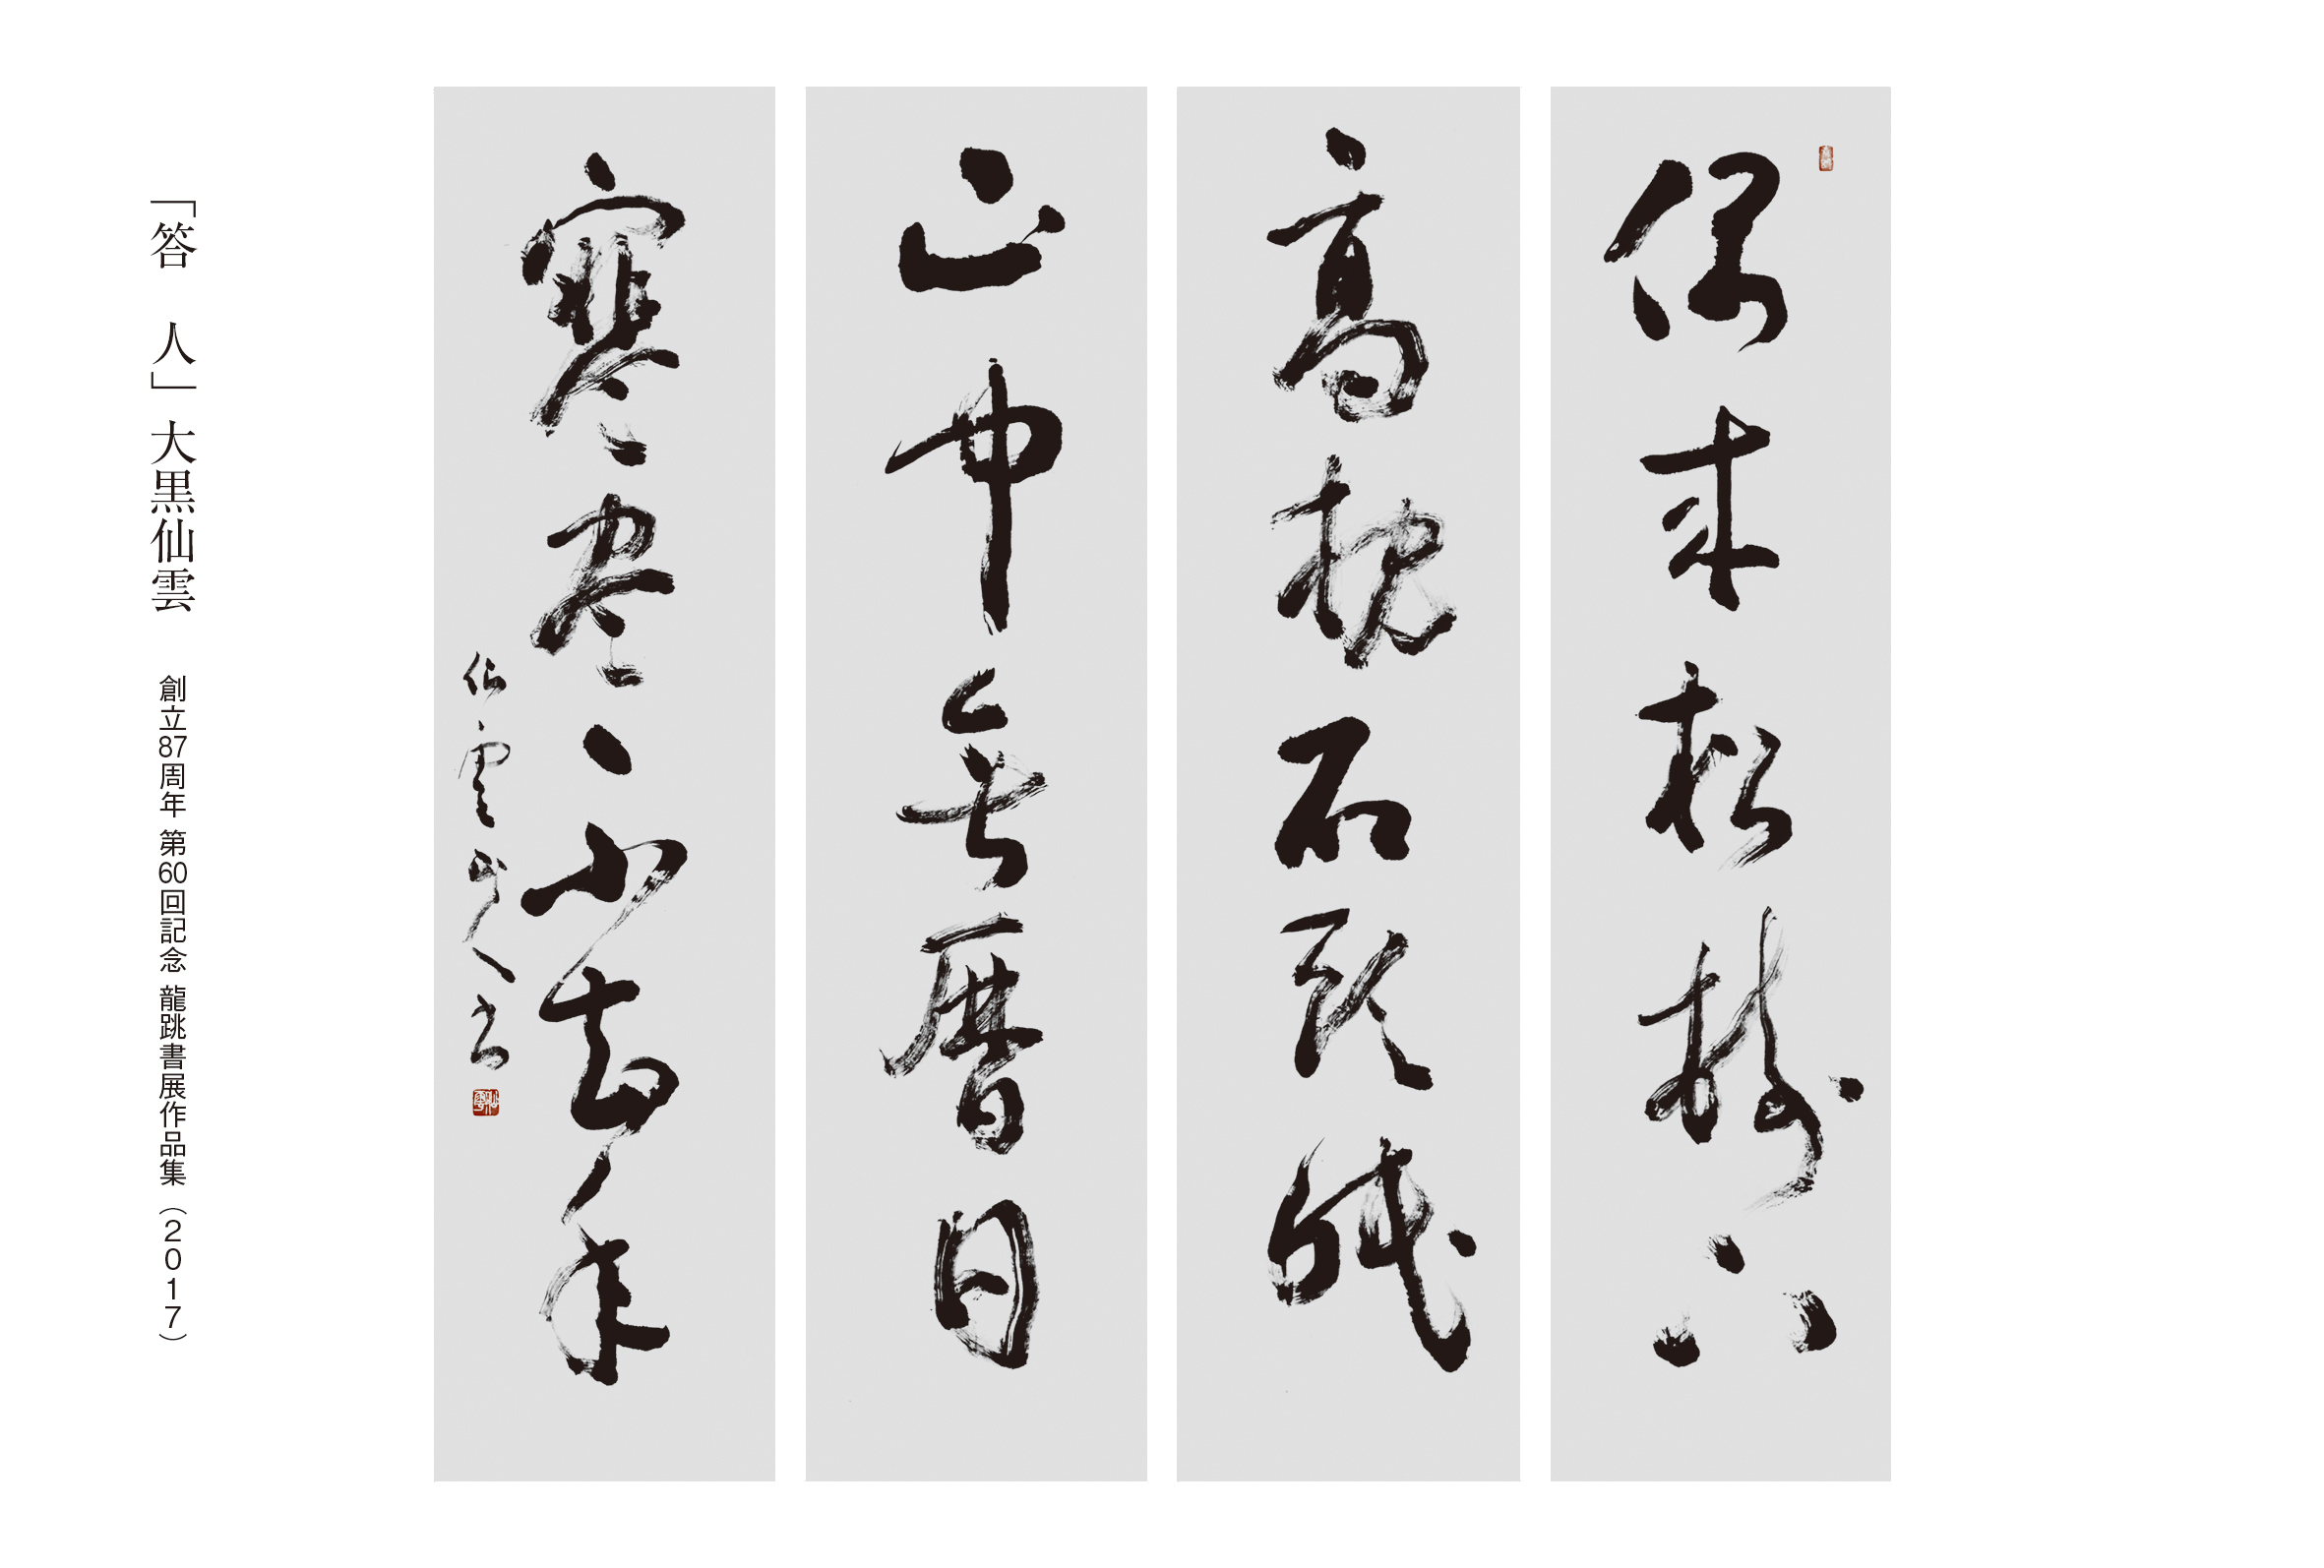 偶来松樹下
高枕石頭眠
山中無暦日
寒尽不知年
仙雲人書
「答 人」大黒仙雲 創立87周年 第60回記念 龍跳書展作品集（2017）